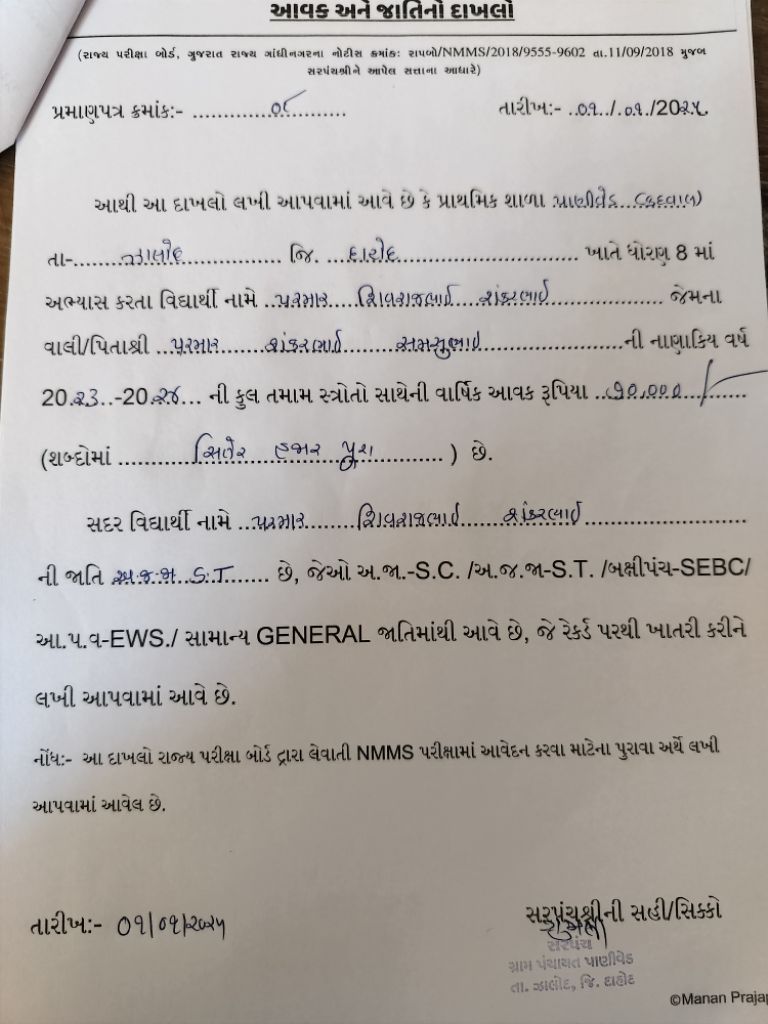 આવક અને જાતિનો દાખલો
(રાજ્ય પરીક્ષા બોર્ડ, ગુજરાત રાજ્ય ગાંધીનગરના નોટીસ ક્રમાંક: રાપબો/NMMS/2018/9555-9602 તા.11/09/2018 મુજબ
સરપંચશ્રીને આપેલ સત્તાના આધારે)
પ્રમાણપત્ર ક્રમાંક:- .................... તારીખ:- ..૦૧../.૦૧./20૨૫.
આથી આ દાખલો લખી આપવામાં આવે છે કે પ્રાથમિક શાળા પાણીવેડ
તા-......ઝાલોદ...... જિ. ..દાહોદ.............. ખાતે ધોરણ 8 માં
અભ્યાસ કરતા વિદ્યાર્થી નામે ..પરમાર.... શિવરાજભાઈ શંકરભાઈ ............ જેમના
વાલી/પિતાશ્રી ..પરમાર...... શંકરભાઈ ...... ......ની નાણાકિય વર્ષ
20.૨૩..-20.૨૪... ની કુલ તમામ સ્ત્રોતો સાથેની વાર્ષિક આવક રૂપિયા ..૭૦,૦૦૦/-......
(શબ્દોમાં ............સિતેર હજાર પુરા ............ ) છે.
સદર વિદ્યાર્થી નામે ..પરમાર...... શિવરાજભાઈ શંકરભાઈ ....................
ની જાતિ અ.જ.જા S.T....... છે, જેઓ અ.જા.-S.C. /અ.જ.જા-S.T. /બક્ષીપંચ-SEBC/
આ.પ.વ-EWS./ સામાન્ય GENERAL જાતિમાંથી આવે છે, જે રેકર્ડ પરથી ખાતરી કરીને
લખી આપવામાં આવે છે.
નોંધ:- આ દાખલો રાજ્ય પરીક્ષા બોર્ડ દ્વારા લેવાતી NMMS પરીક્ષામાં આવેદન કરવા માટેના પુરાવા અર્થે લખી
આપવામાં આવેલ છે.
તારીખ:- ૦૧/૦૧/૨૦૨૫ સરપંચશ્રીની સહી/સિક્કો
સરપંચ
ગ્રામ પંચાયત પાણીવેડ
તા. ઝાલોદ, જિ. દાહોદ
©Manan Prajap